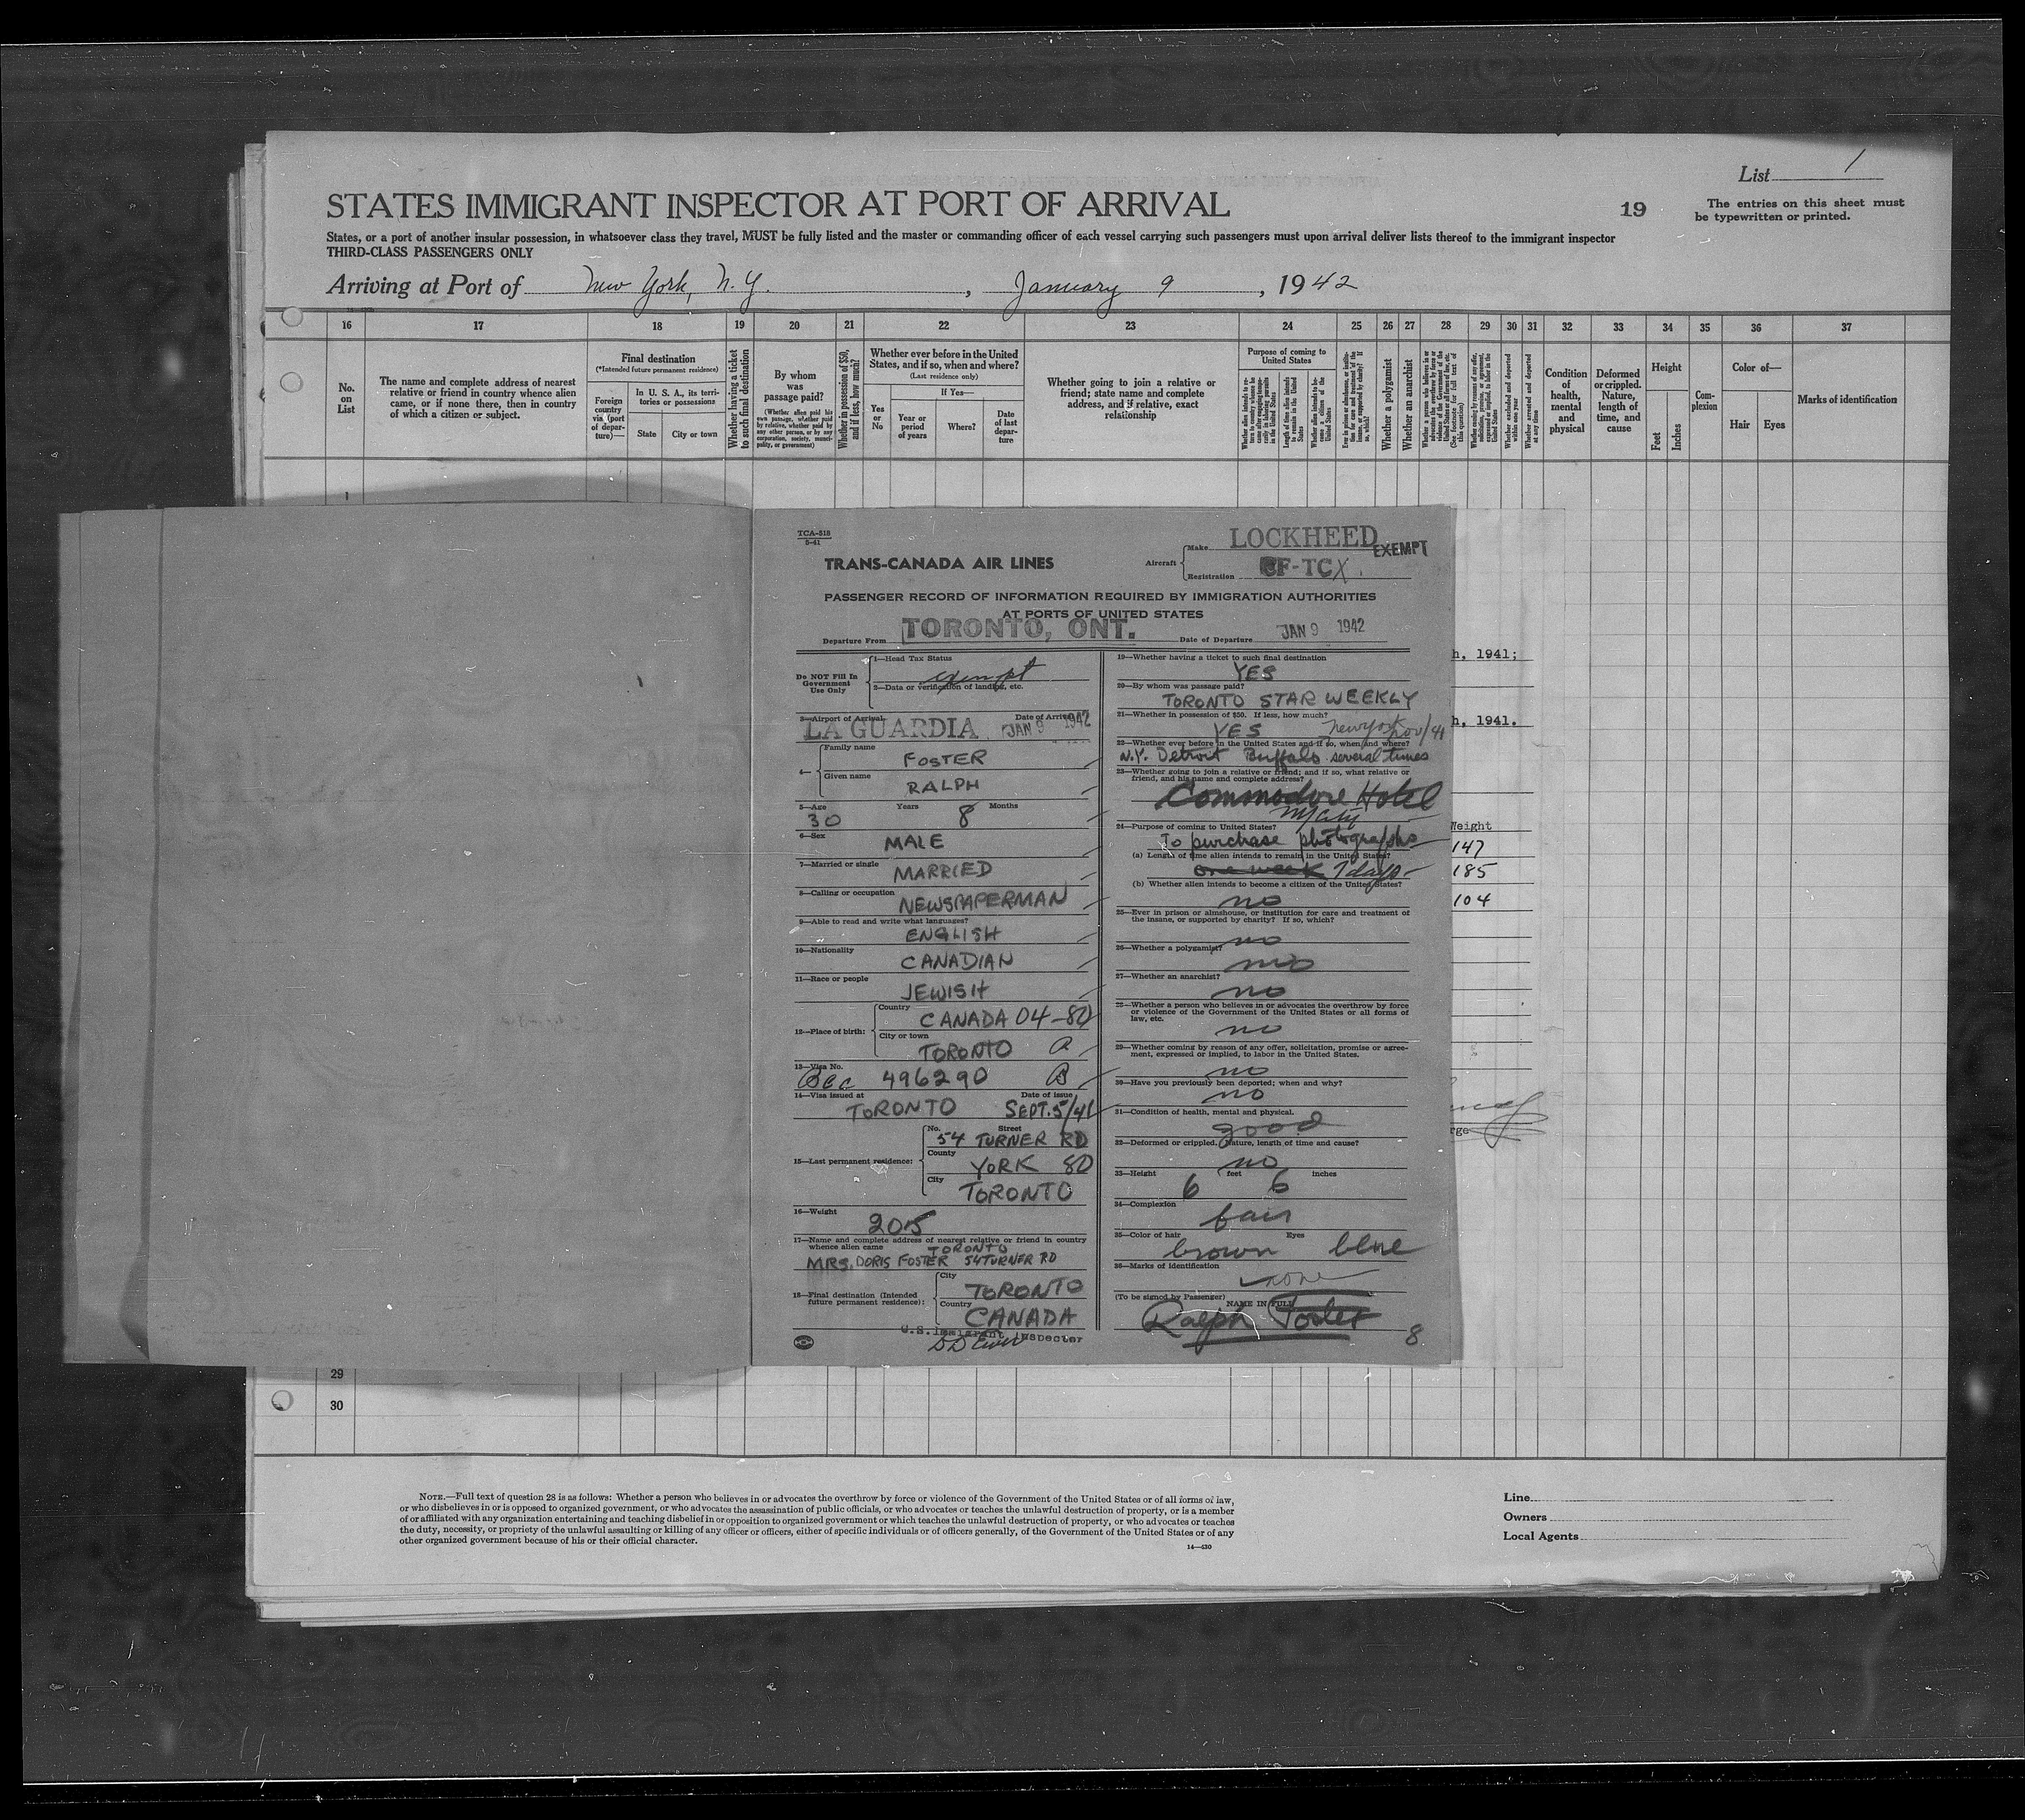 List 1
STATES IMMIGRANT INSPECTOR AT PORT OF ARRIVAL
19
The entries on this sheet must
be typewritten or printed.
States, or a port of another insular possession, in whatsoever class they travel, MUST be fully listed and the master or commanding officer of each vessel carrying such passengers must upon arrival deliver lists thereof to the immigrant inspector
THIRD-CLASS PASSENGERS ONLY
Arriving at Port of New York, N.Y. , January 9 , 1942
16 17 18 19 20 21 22 23 24 25 26 27 28 29 30 31 32 33 34 35 36 37
No.
on
List
The name and complete address of nearest
relative or friend in country whence alien
came, or if none there, then in country
of which a citizen or subject.
Final destination
(*Intended future permanent residence)
Foreign
country
via (port
of depar-
ture)—
In U. S. A., its terri-
tories or possessions
State
City or town
Whether having a ticket
to such final destination
By whom
was
passage paid?
(Whether alien paid his
own passage, whether paid
by relative, whether paid by
any other person, or by any
corporation, society, munici-
pality, or government)
Whether in possession of $50,
and if less, how much?
Whether ever before in the United
States, and if so, when and where?
(Last residence only)
Yes
or
No
If Yes—
Year or
period
of years
Where?
Date
of last
depar-
ture
Whether going to join a relative or
friend; state name and complete
address, and if relative, exact
relationship
Purpose of coming to
United States
Whether a polygamist
Whether an anarchist
Whether excluded and deported
within one year
Whether arrested and deported
at any time
Condition
of
health,
mental
and
physical
Deformed
or crippled.
Nature,
length of
time, and
cause
Height
Feet
Inches
Com-
plexion
Color of—
Hair
Eyes
Marks of identification
1
TCA-518
5-41
TRANS-CANADA AIR LINES
Aircraft
Make LOCKHEED
EXEMPT
Registration CF-TCX
PASSENGER RECORD OF INFORMATION REQUIRED BY IMMIGRATION AUTHORITIES
AT PORTS OF UNITED STATES
Departure From TORONTO, ONT. Date of Departure JAN 9 1942
Do NOT Fill In
Government
Use Only
1—Head Tax Status
exempt
2—Data or verification of landing, etc.
3—Airport of Arrival Date of Arrival
LA GUARDIA JAN 9 1942
4—
Family name
FOSTER
Given name
RALPH
5—Age Years Months
30 8
6—Sex
MALE
7—Married or single
MARRIED
8—Calling or occupation
NEWSPAPERMAN
9—Able to read and write what languages?
ENGLISH
10—Nationality
CANADIAN
11—Race or people
JEWISH
12—Place of birth:
Country
CANADA 04-80
City or town
TORONTO
13—Visa No.
Bcc 496290 B
14—Visa issued at Date of issue
TORONTO SEPT. 5/41
15—Last permanent residence:
No. Street
54 TURNER RD
County
YORK 80
City
TORONTO
16—Weight
205
17—Name and complete address of nearest relative or friend in country
whence alien came
TORONTO
MRS. DORIS FOSTER 54 TURNER RD
18—Final destination (Intended
future permanent residence):
City
TORONTO
Country
CANADA
U.S. Immigrant Inspector
19—Whether having a ticket to such final destination
YES
20—By whom was passage paid?
TORONTO STAR WEEKLY
21—Whether in possession of $50. If less, how much?
YES New York Nov/41
22—Whether ever before in the United States and if so, when and where?
N.Y. Detroit Buffalo several times
23—Whether going to join a relative or friend; and if so, what relative or
friend, and his name and complete address?
Commodore Hotel
NYCity
24—Purpose of coming to United States?
To purchase photographs
(a) Length of time alien intends to remain in the United States?
one week 7 days
(b) Whether alien intends to become a citizen of the United States?
no
25—Ever in prison or almshouse, or institution for care and treatment of
the insane, or supported by charity? If so, which?
no
26—Whether a polygamist?
no
27—Whether an anarchist?
no
28—Whether a person who believes in or advocates the overthrow by force
or violence of the Government of the United States or all forms of
law, etc.
no
29—Whether coming by reason of any offer, solicitation, promise or agree-
ment, expressed or implied, to labor in the United States.
no
30—Have you previously been deported; when and why?
no
31—Condition of health, mental and physical.
good
32—Deformed or crippled. Nature, length of time and cause?
no
33—Height feet inches
6 6
34—Complexion
fair
35—Color of hair Eyes
brown blue
36—Marks of identification
none
(To be signed by Passenger)
NAME IN FULL
Ralph Foster
8
h, 1941;
h, 1941.
Weight
147
185
104
29
30
NOTE.—Full text of question 28 is as follows: Whether a person who believes in or advocates the overthrow by force or violence of the Government of the United States or of all forms of law,
or who disbelieves in or is opposed to organized government, or who advocates the assassination of public officials, or who advocates or teaches the unlawful destruction of property, or is a member
of or affiliated with any organization entertaining and teaching disbelief in or opposition to organized government or which teaches the unlawful destruction of property, or who advocates or teaches
the duty, necessity, or propriety of the unlawful assaulting or killing of any officer or officers, either of specific individuals or of officers generally, of the Government of the United States or of any
other organized government because of his or their official character.
14—430
Line
Owners
Local Agents